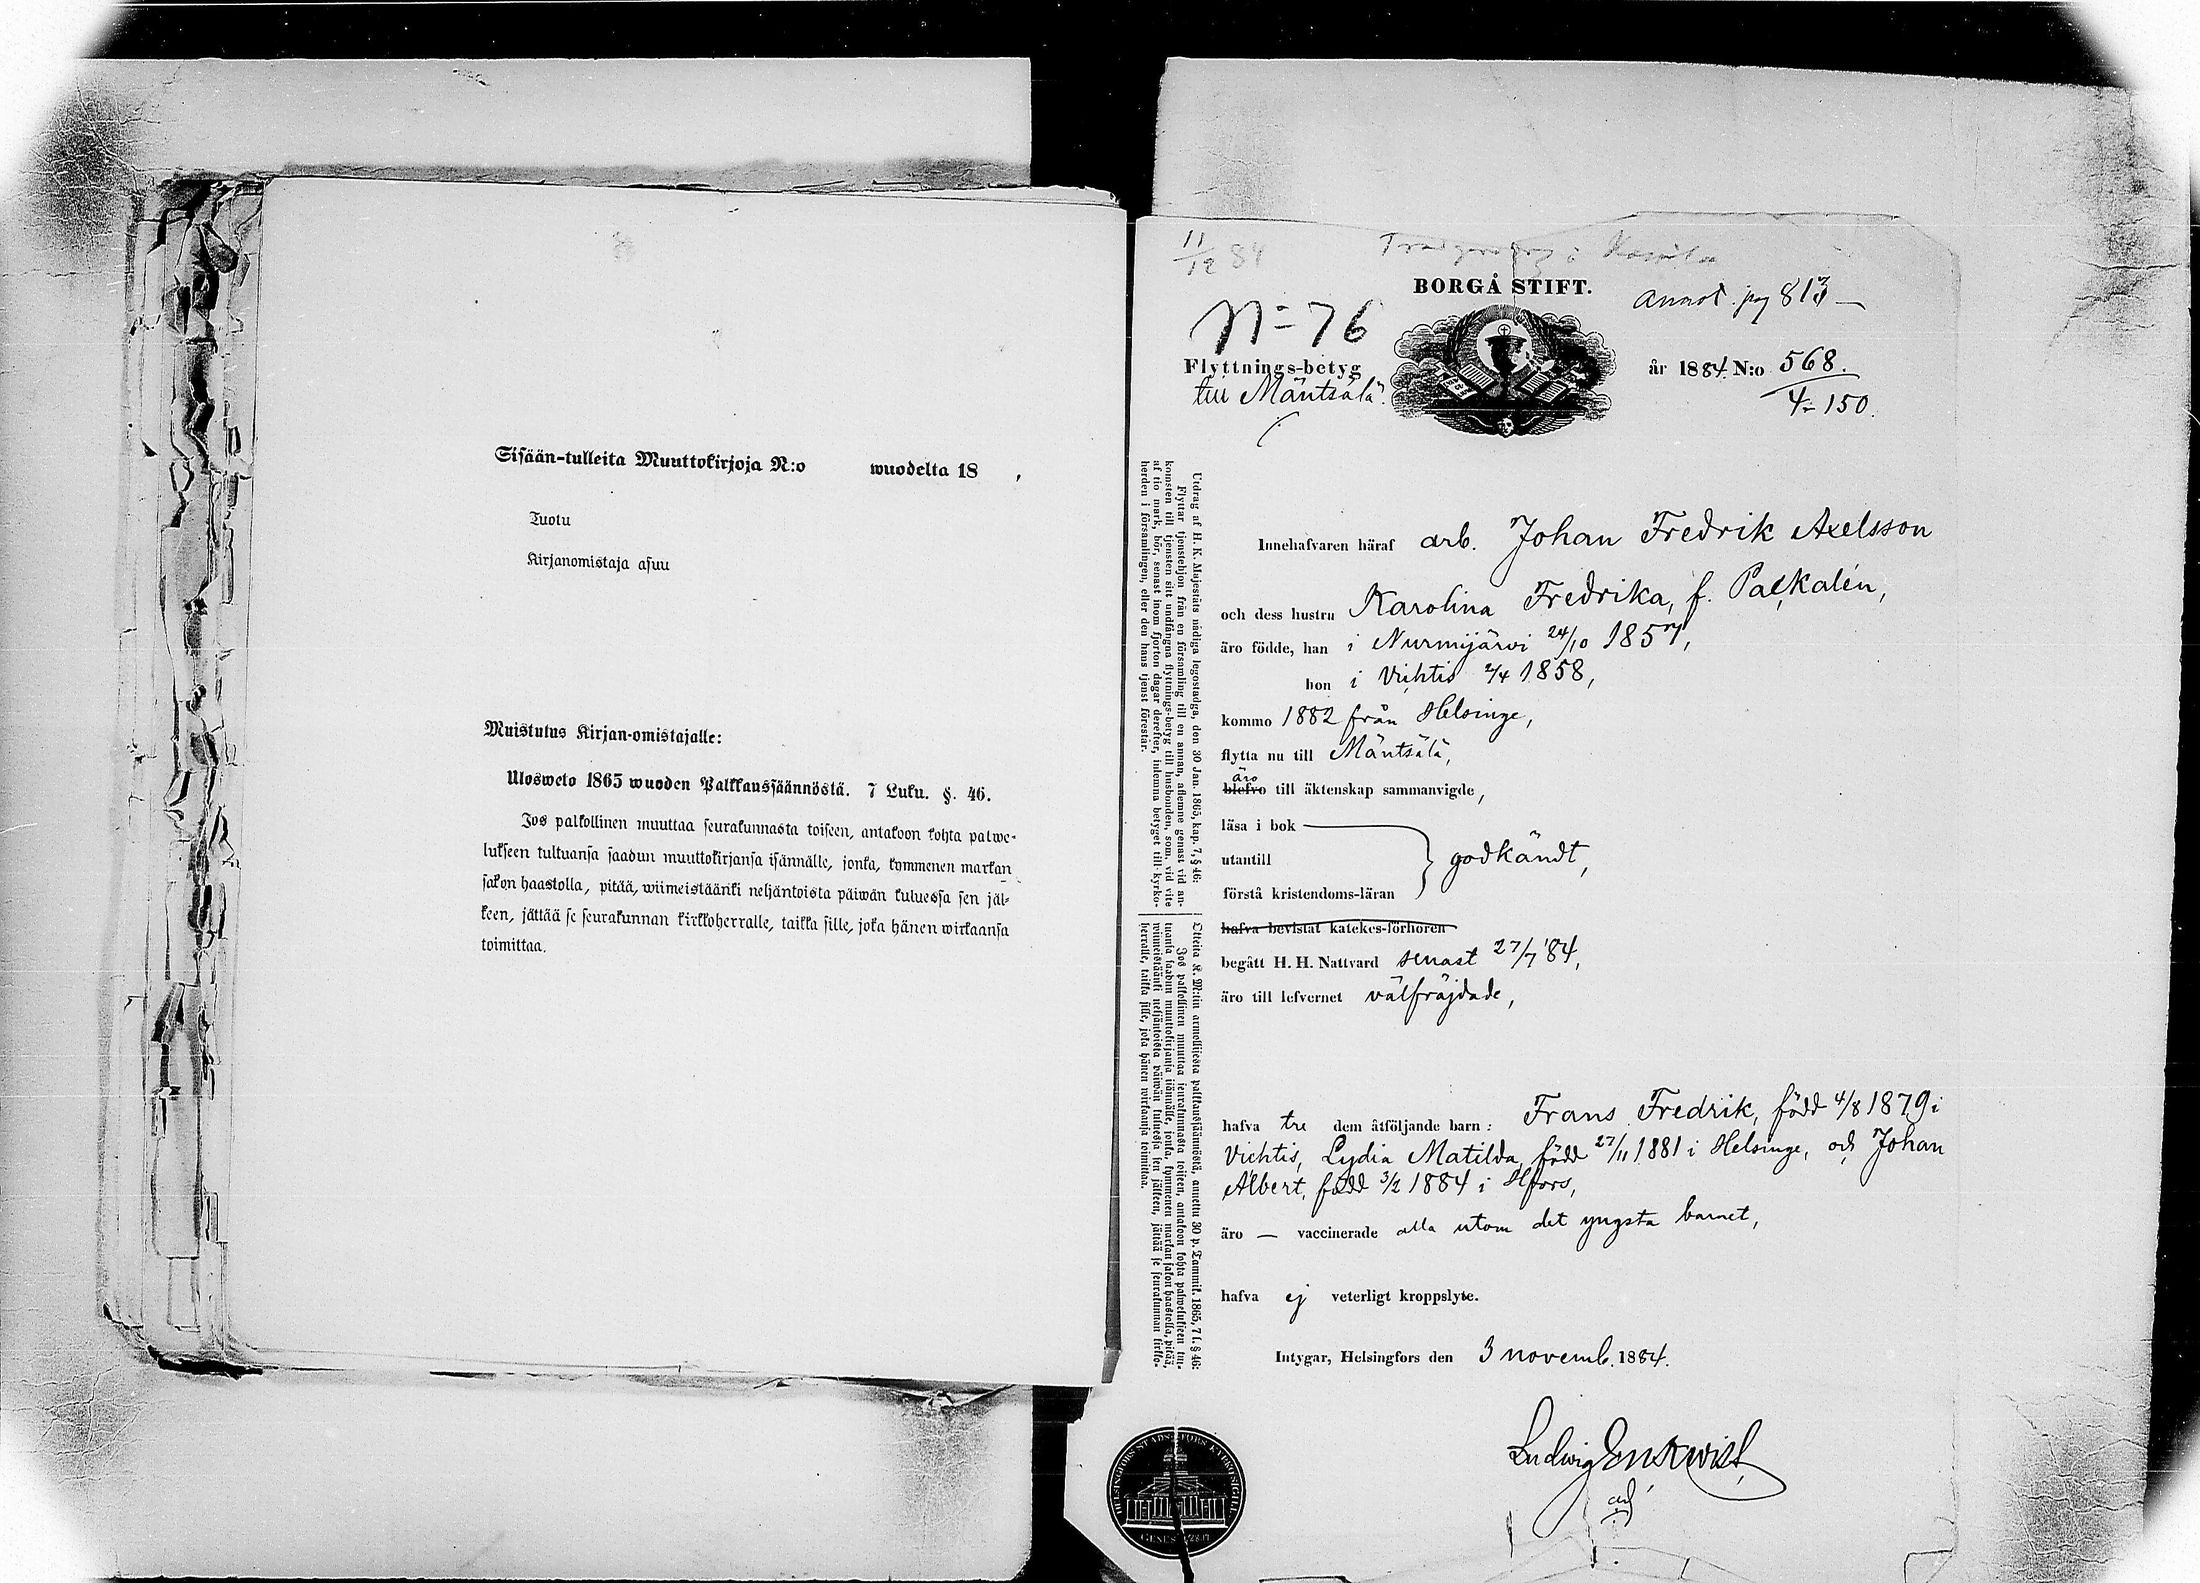 Sisään-tulleita Muuttokirjoja N:o wuodelta 18 ,
Tuotu
Kirjanomistaja asuu
Muistutus Kirjan-omistajalle:
Ulosweto 1865 wuoden Palkkaussäännöstä. 7 Luku. §. 46.
Jos palkollinen muuttaa seurakunnasta toiseen, antakoon kohta palwe-
lukseen tultuansa saadun muuttokirjansa isännälle, jonka, kymmenen markan
sakon haastolla, pitää, wiimeistäänki neljäntoista päiwän kuluessa sen jäl-
keen, jättää se seurakunnan kirkkoherralle, taikka sille, joka hänen wirkaansa
toimittaa.
11/12 84
BORGÅ STIFT.
annot. pag 813
N=76
Flyttnings-betyg
till Mäntsälä.
år 1884. N:o 568.
4=150.
Utdrag af H. K. Majestäts nådiga legostadga, den 30 Jan. 1865, kap. 7, § 46:
Flyttar tjenstehjon från en församling till en annan, aflemne genast vid an-
komsten till tjensten sitt undfångna flyttnings-betyg till husbonden, som, vid vite
af tio mark, bör, senast inom fjorton dagar derefter, inlemna betyget till kyrko-
herden i församlingen, eller den hans tjenst förestår.
Otteita K. M:tin armollisesta palkkaussäännöstä, annettu 30 p. Tammik. 1865, 7 l. § 46:
Jos palkollinen muuttaa seurakunnasta toiseen, antakoon kohta palwelukseen tul-
tuansa saadun muuttokirjansa isännälle, jonka, kymmenen markan sakon haastolla, pitää,
wiimeistäänki neljäntoista päiwän kuluessa sen jälkeen, jättää se seurakunnan kirkko-
herralle, taikka sille, joka hänen wirkaansa toimittaa.
Innehafvaren häraf arb. Johan Fredrik Axelsson
och dess hustru Karolina Fredrika, f. Palkalén,
äro födde, han i Nurmijärvi 24/10 1857,
hon i Vichtis 2/4 1858,
kommo 1882 från Helsinge,
flytta nu till Mäntsälä,
äro
blefvo till äktenskap sammanvigde,
läsa i bok
utantill godkändt,
förstå kristendoms-läran
hafva bevistat katekes-förhören
begått H. H. Nattvard senast 27/7 '84,
äro till lefvernet välfräjdade,
hafva tre dem åtföljande barn: Frans Fredrik, född 4/8 1879 i
Vichtis, Lydia Matilda, född 27/11 1881 i Helsinge, och Johan
Albert, född 3/2 1884 i Hfors,
äro — vaccinerade alla utom det yngsta barnet,
hafva ej veterligt kroppslyte.
Intygar, Helsingfors den 3 novemb. 1884.
Ludwig Enkwist
adj.
HELSINGFORS STADSFÖRS KYRKOSIGILL